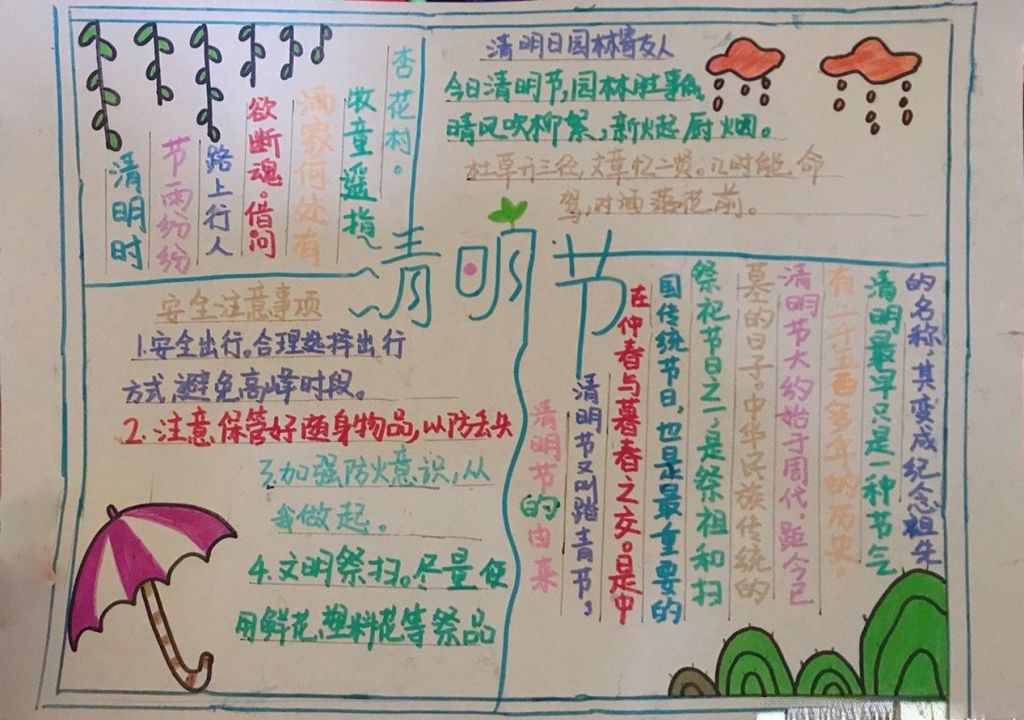 清明时
节雨纷纷
路上行人
欲断魂。借问
酒家何处有
牧童遥指
杏花村。
清明日园林寄友人
今日清明节,园林胜事偏。
晴风吹柳絮,新火起厨烟。
杜草开三径,文章忆二贤。几时能命
驾,对酒落花前。
清明节
安全注意事项
1.安全出行。合理选择出行
方式,避免高峰时段。
2.注意保管好随身物品,以防丢失
3.加强防火意识,从
我做起。
4.文明祭扫。尽量使
用鲜花、塑料花等祭品
清明节的由来
清明节又叫踏青节,
在仲春与暮春之交。是中
国传统节日,也是最重要的
祭祀节日之一,是祭祖和扫
墓的日子。中华民族传统的
清明节大约始于周代,距今已
有二千五百多年的历史。
清明最早只是一种节气
的名称,其变成纪念祖先